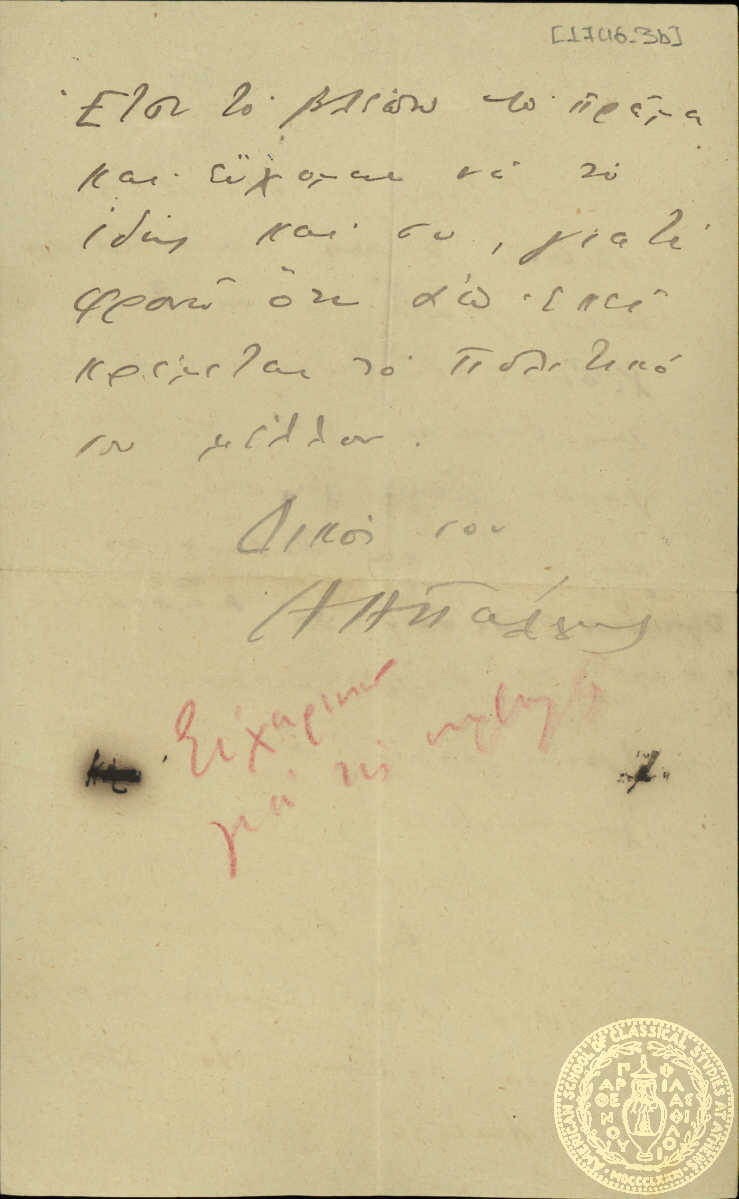 [1746.3b]
Ἔτσι τὸ βλέπω τὸ πρᾶμα
καὶ εὔχομαι νὰ τὸ
ἰδῇς καὶ σύ, γιατὶ
φρονῶ ὅτι ἀπ' ἐκεῖ
κρέμεται τὸ πολιτικό
σου μέλλον.
Δικός σου
Εὐχαριστῶ
γιὰ τὶς
AMERICAN SCHOOL OF CLASSICAL STUDIES AT ATHENS
ΠΑΡΘΕΝΟΥ ΦΙΛΑΣ ΦΙΛΟΙ
MDCCCLXXXI